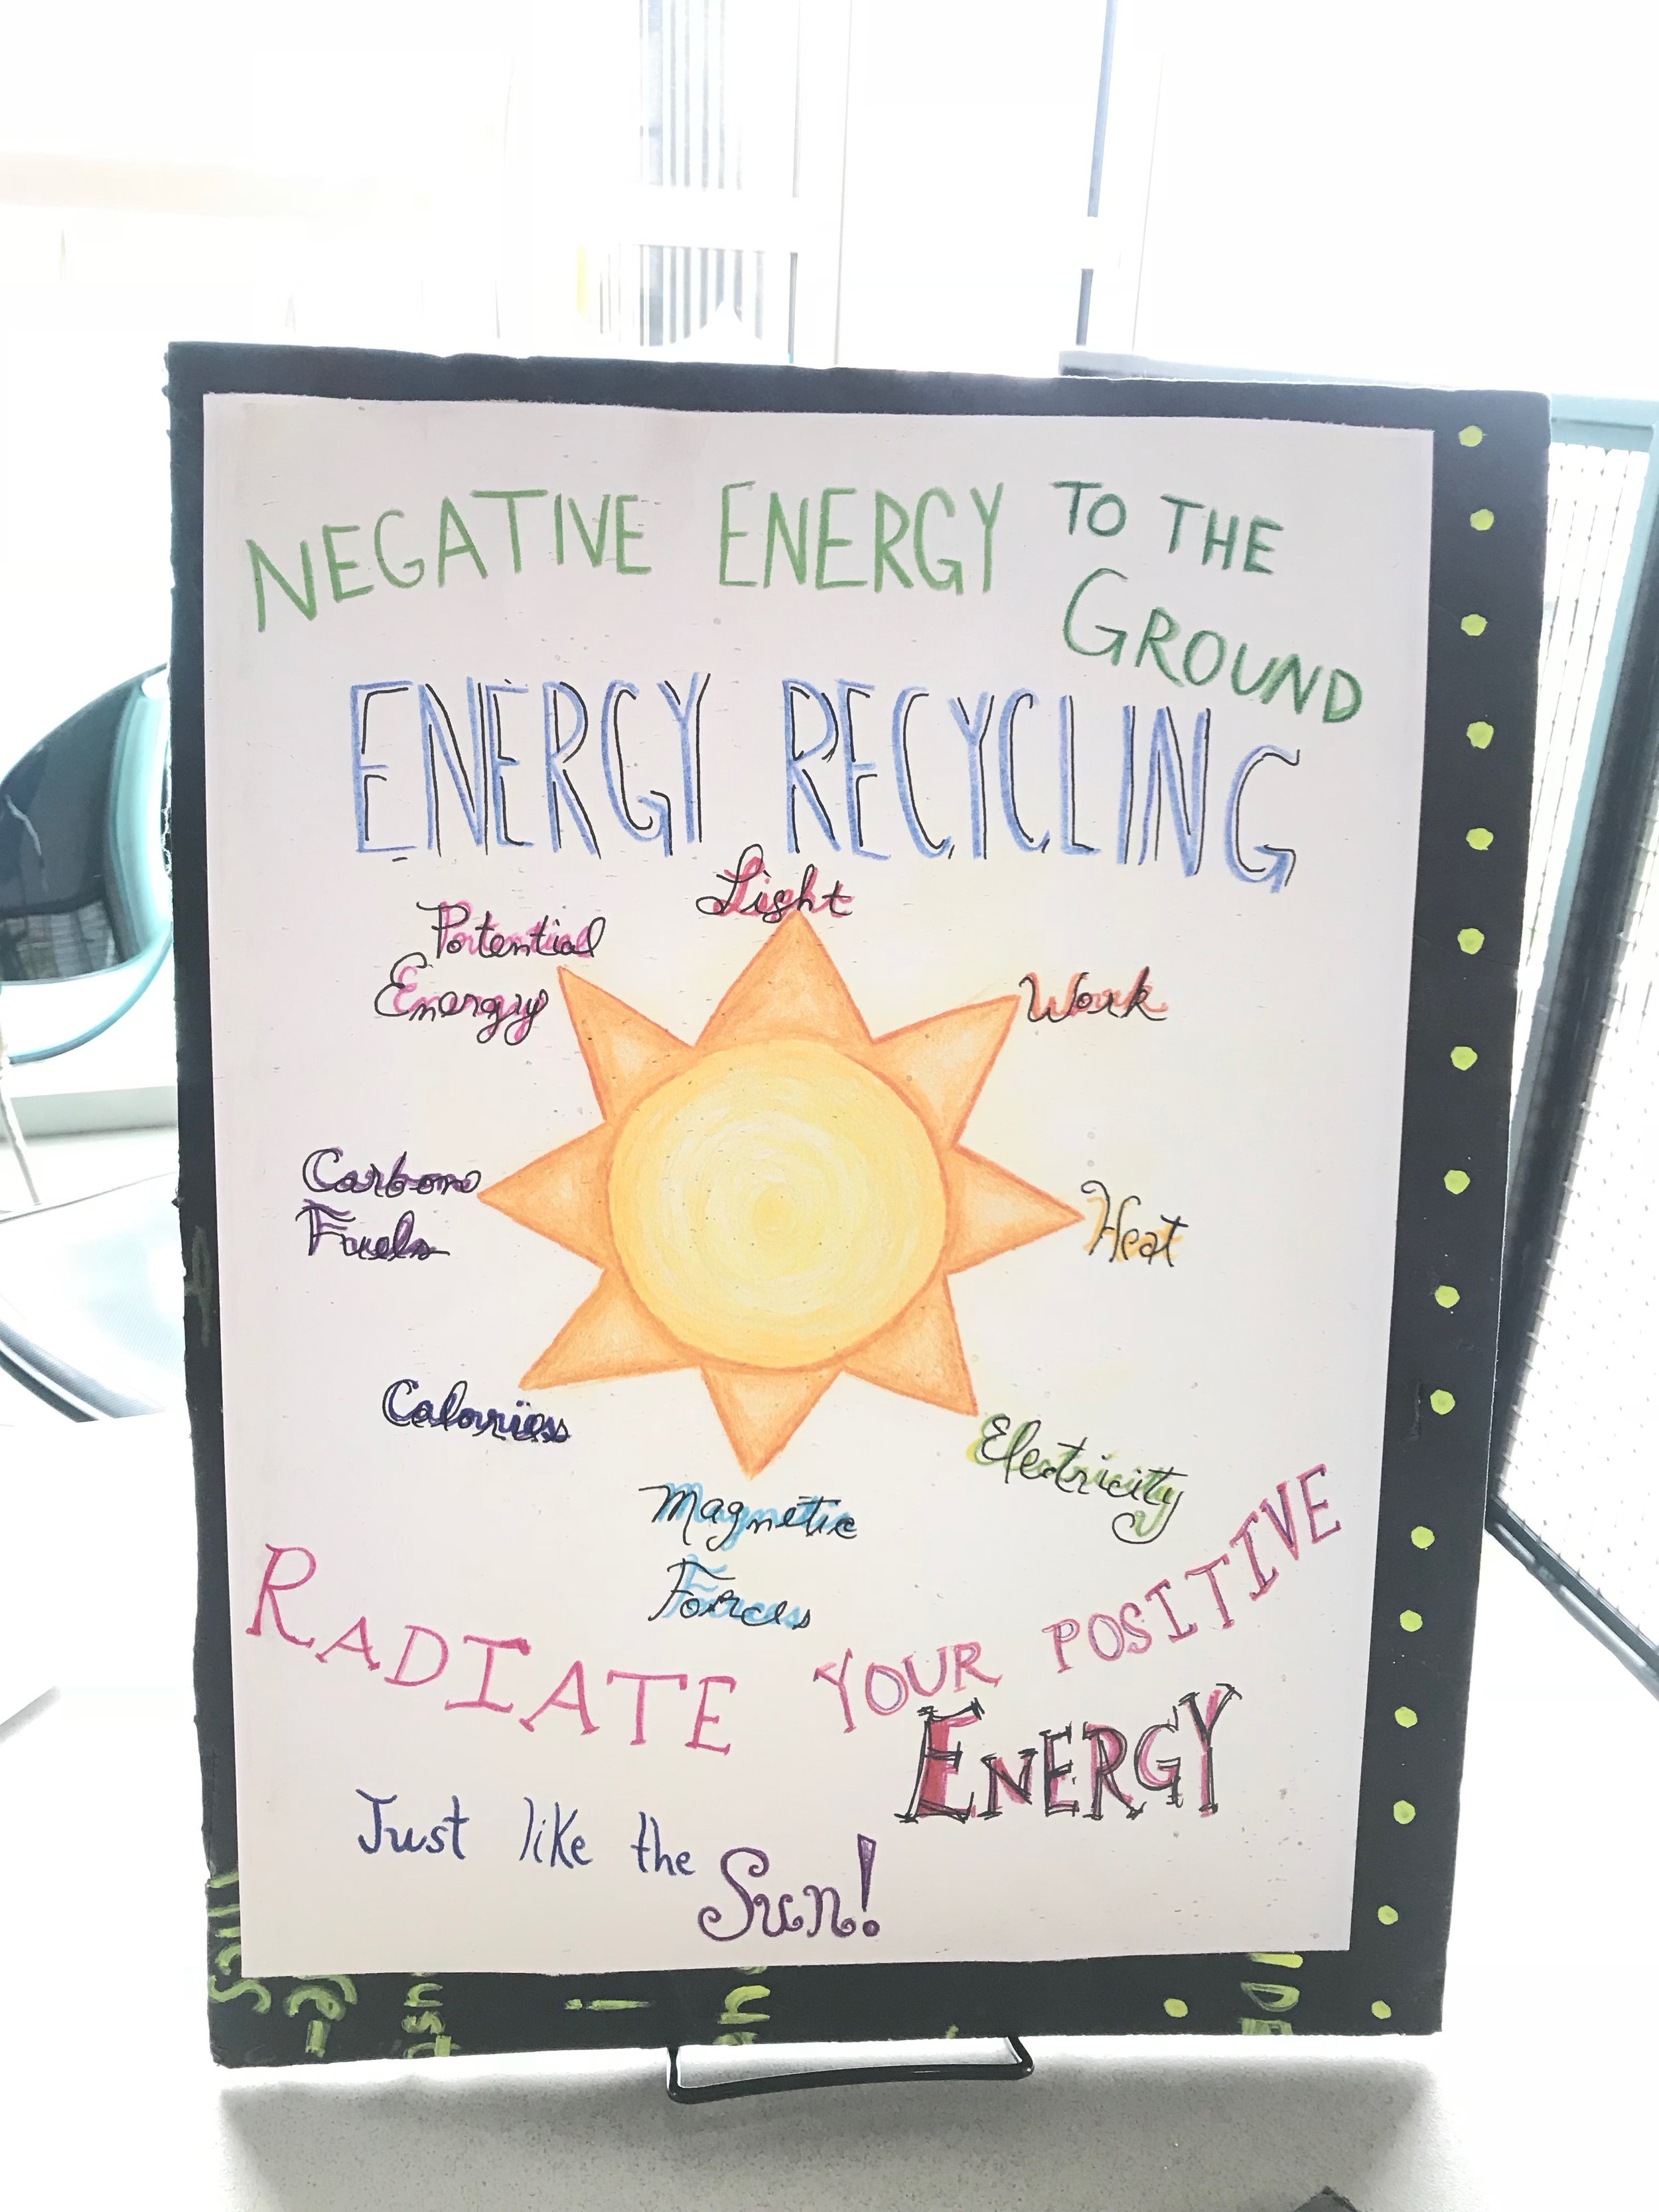 NEGATIVE ENERGY TO THE
GROUND
ENERGY RECYCLING
Light
Potential
Energy
Work
Carbon
Fuels
Heat
Calories
Electricity
Magnetic
Forces
RADIATE YOUR POSITIVE
ENERGY
Just like the
Sun!